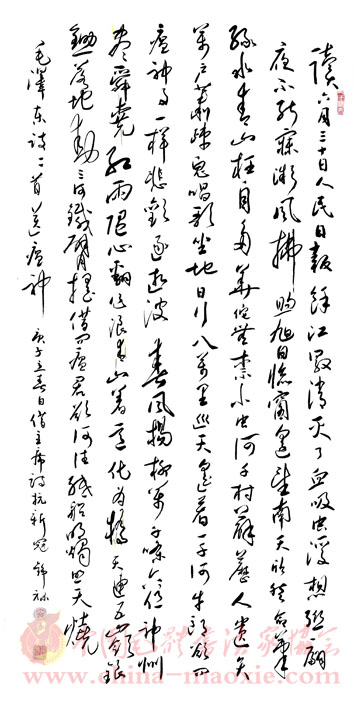 讀六月三十日人民日報餘江縣消灭了血吸虫浮想联翩
夜不能寐微风拂煦旭日临窗遥望南天欣然命笔
绿水青山枉自多華佗無奈小虫何千村薜荔人遗矢
萬户萧疎鬼唱歌坐地日行八萬里巡天遥看一千河牛郎欲问
瘟神事一样悲欢逐逝波 春風楊柳萬千條六億神州
尽舜尧红雨随心翻作浪青山着意化为桥天連五嶺銀
鋤落地動三河鐵臂摇借问瘟君欲何往纸船明烛照天燒
毛澤东诗二首送瘟神 庚子立春日借主席诗抗新冠
中国毛體書法家協會
www.china-maoxie.com